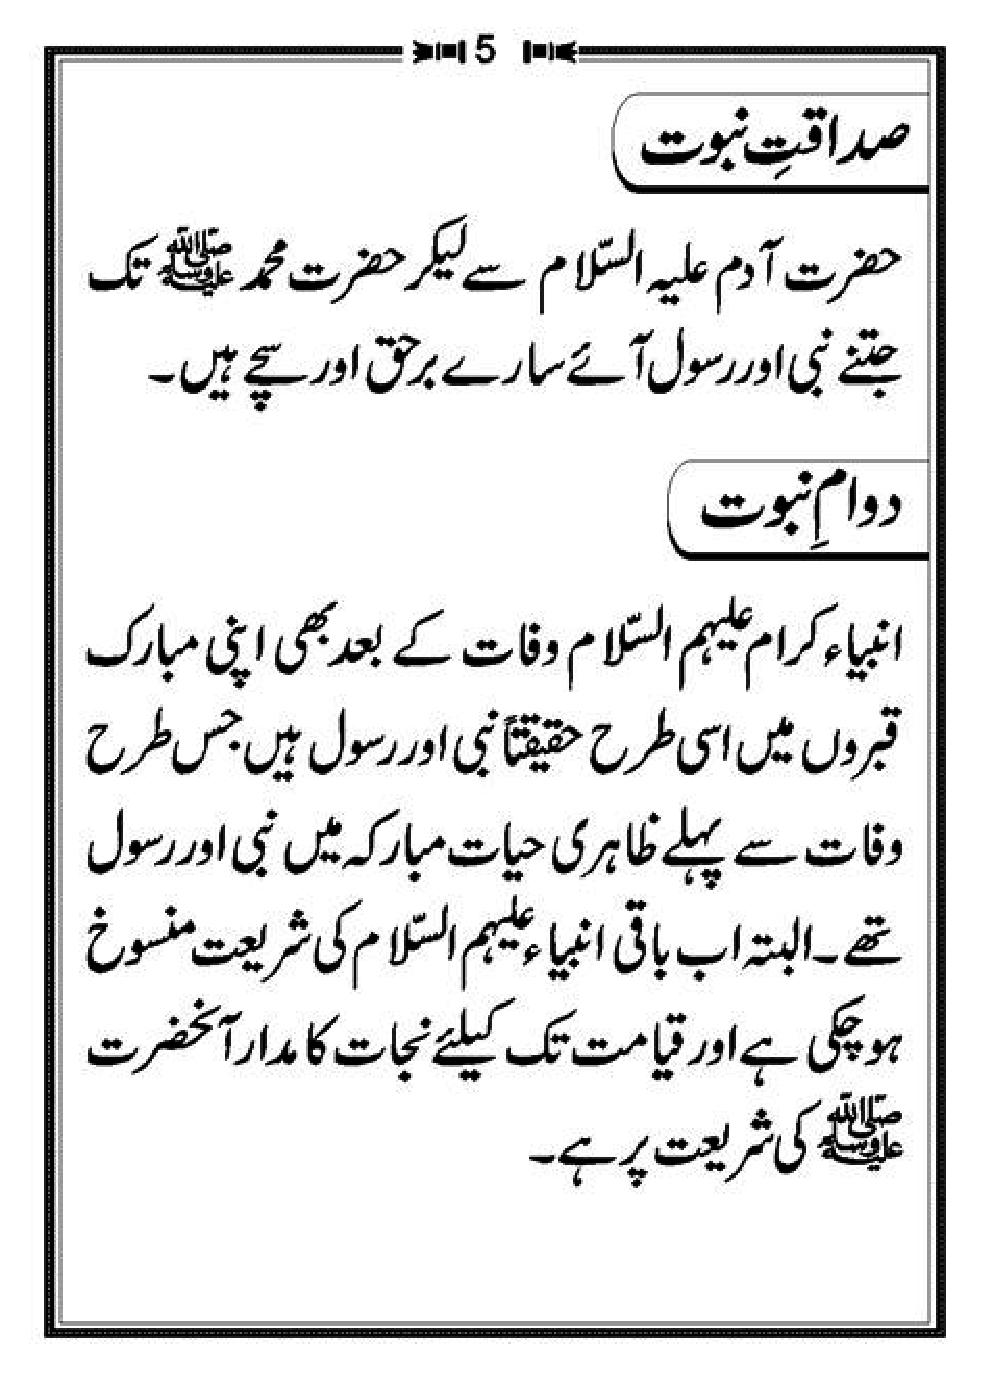 5
صداقتِ نبوت
حضرت آدم علیہ السّلام سے لیکر حضرت محمد ﷺ تک
جتنے نبی اور رسول آئے سارے برحق اور سچے ہیں۔
دوامِ نبوت
انبیاء کرام علیہم السّلام وفات کے بعد بھی اپنی مبارک
قبروں میں اسی طرح حقیقتاً نبی اور رسول ہیں جس طرح
وفات سے پہلے ظاہری حیات مبارکہ میں نبی اور رسول
تھے۔ البتہ اب باقی انبیاء علیہم السّلام کی شریعت منسوخ
ہوچکی ہے اور قیامت تک کیلئے نجات کا مدار آنحضرت
ﷺ کی شریعت پر ہے۔